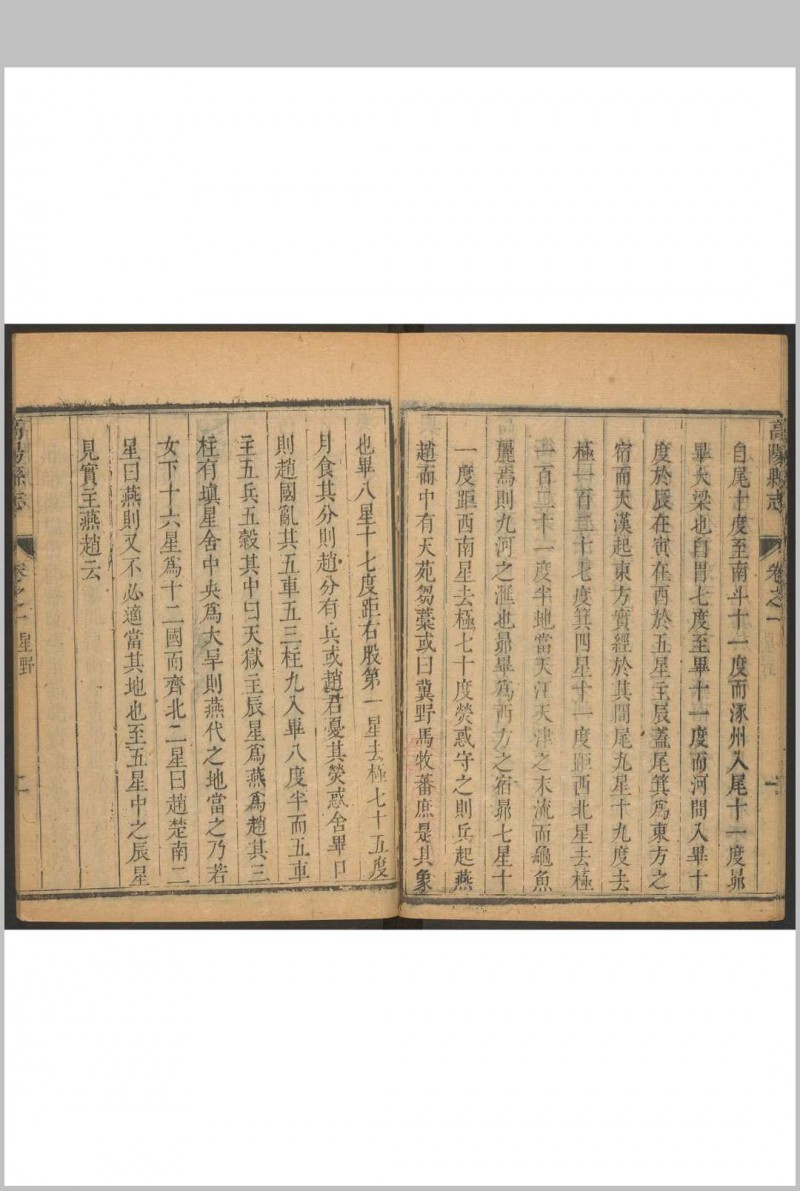 高陽縣志
卷之一
一
自尾十度至南斗十一度而涿州入尾十一度昴
畢大梁也自胃七度至畢十一度而河間入畢十
度於辰在寅在酉於五星主辰蓋尾箕爲東方之
宿而天漢起東方實經於其間尾九星十九度去
極一百三十七度箕四星十一度距西北星去極
一百二十一度半地當天江天津之末流而龜魚
麗焉則九河之滙也昴畢爲西方之宿昴七星十
一度距西南星去極七十度熒惑守之則兵起燕
趙而中有天苑芻藁或曰冀野馬牧蕃庶是其象
也畢八星十七度距右股第一星去極七十五度
月食其分則趙分有兵或趙君憂其熒惑舍畢口
則趙國亂其五車五三柱九入畢八度半而五車
主五兵五穀其中曰天獄主辰星爲燕爲趙其三
柱有塡星舍中央爲大旱則燕代之地當之乃若
女下十六星爲十二國而齊北二星曰趙楚南二
星曰燕則又不必適當其地也至五星中之辰星
見實主燕趙云
高陽縣志
卷之一
星野